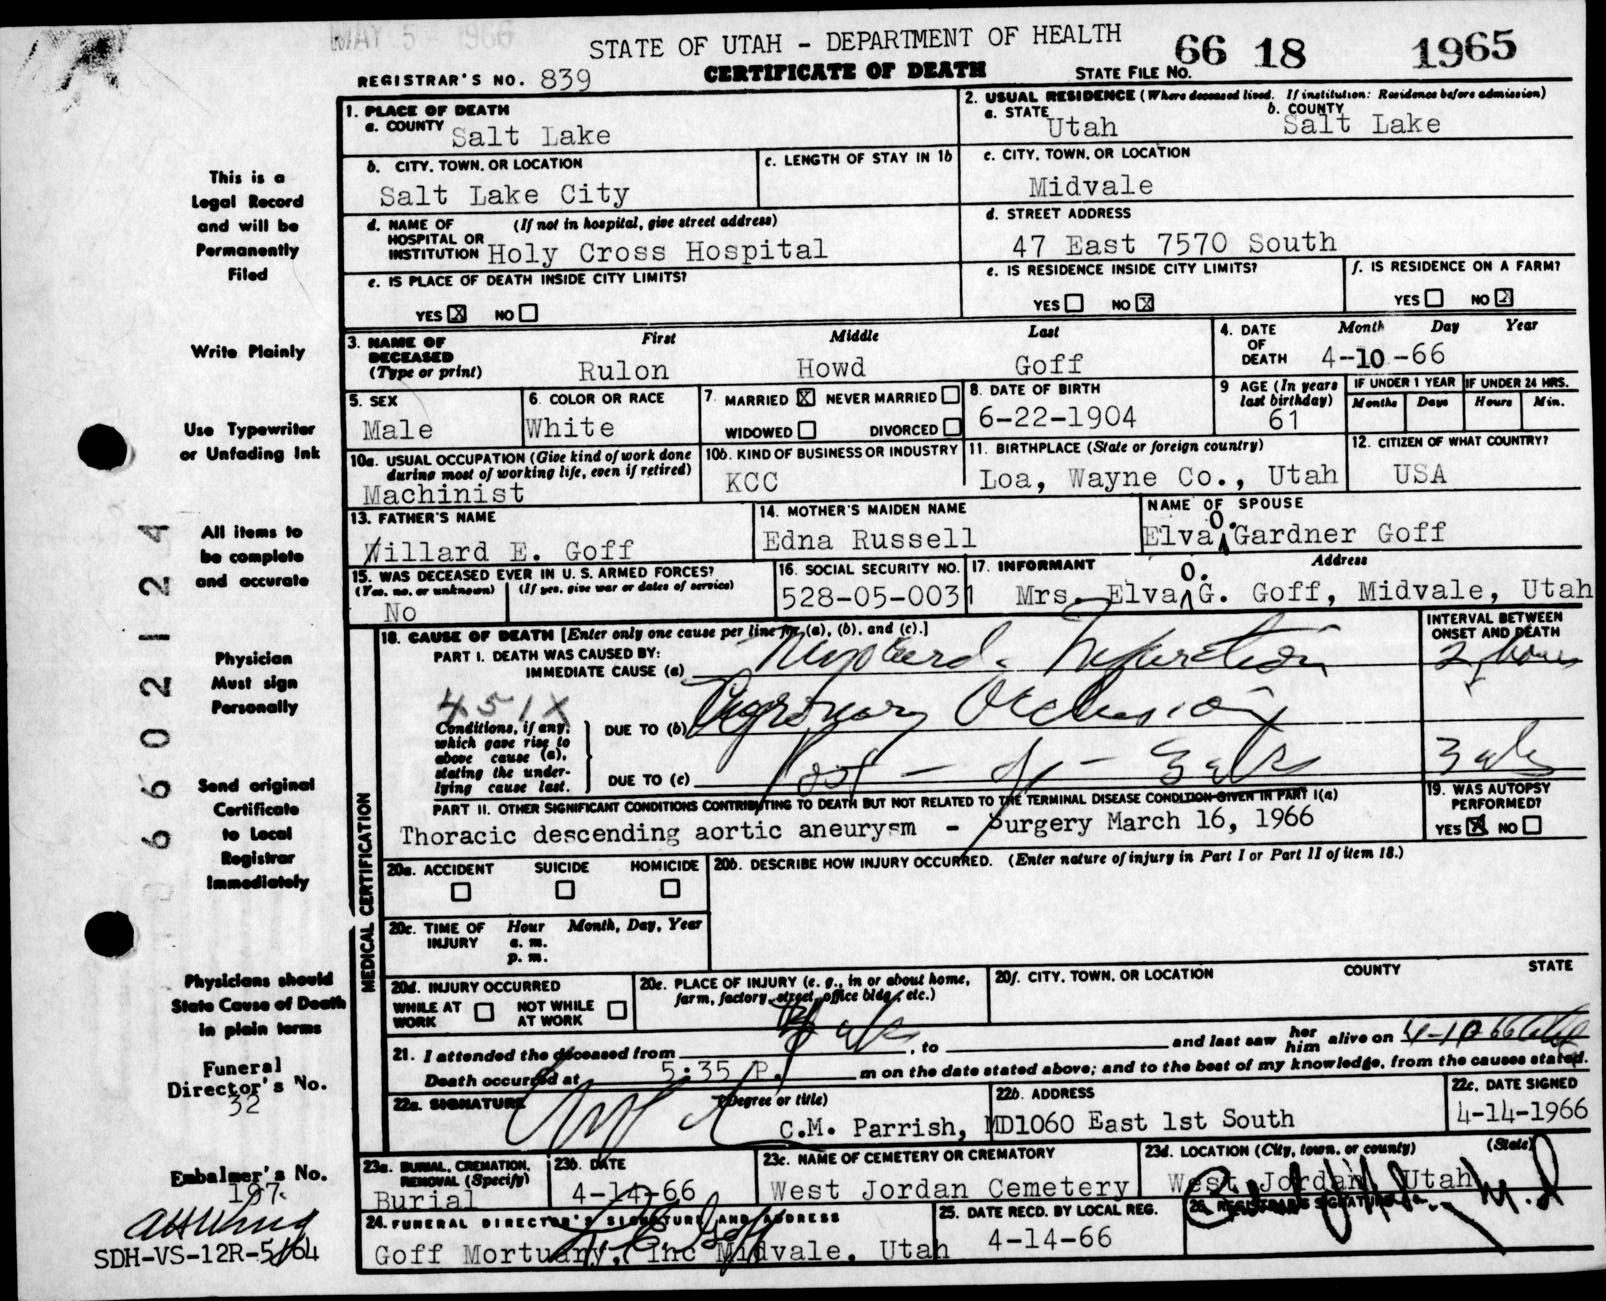 MAY 5 - 1966
STATE OF UTAH - DEPARTMENT OF HEALTH
66 18 1965
REGISTRAR'S NO. 839
CERTIFICATE OF DEATH
STATE FILE NO.
1. PLACE OF DEATH
a. COUNTY Salt Lake
2. USUAL RESIDENCE (Where deceased lived. If institution: Residence before admission)
a. STATE Utah
b. COUNTY Salt Lake
b. CITY, TOWN, OR LOCATION
Salt Lake City
c. LENGTH OF STAY IN 1b
c. CITY, TOWN, OR LOCATION
Midvale
d. NAME OF HOSPITAL OR INSTITUTION (If not in hospital, give street address)
Holy Cross Hospital
d. STREET ADDRESS
47 East 7570 South
e. IS PLACE OF DEATH INSIDE CITY LIMITS?
YES X NO
e. IS RESIDENCE INSIDE CITY LIMITS?
YES NO X
f. IS RESIDENCE ON A FARM?
YES NO X
3. NAME OF DECEASED (Type or print)
First Middle Last
Rulon Howd Goff
4. DATE OF DEATH
Month Day Year
4-10-66
5. SEX
Male
6. COLOR OR RACE
White
7. MARRIED X NEVER MARRIED
WIDOWED DIVORCED
8. DATE OF BIRTH
6-22-1904
9 AGE (In years last birthday)
61
IF UNDER 1 YEAR
Months Days
IF UNDER 24 HRS.
Hours Min.
10a. USUAL OCCUPATION (Give kind of work done during most of working life, even if retired)
Machinist
10b. KIND OF BUSINESS OR INDUSTRY
KCC
11. BIRTHPLACE (State or foreign country)
Loa, Wayne Co., Utah
12. CITIZEN OF WHAT COUNTRY?
USA
13. FATHER'S NAME
Willard E. Goff
14. MOTHER'S MAIDEN NAME
Edna Russell
NAME OF SPOUSE
Elva O. Gardner Goff
15. WAS DECEASED EVER IN U. S. ARMED FORCES?
(Yes, no, or unknown) (If yes, give war or dates of service)
No
16. SOCIAL SECURITY NO.
528-05-0031
17. INFORMANT Address
Mrs. Elva O. G. Goff, Midvale, Utah
MEDICAL CERTIFICATION
18. CAUSE OF DEATH [Enter only one cause per line for (a), (b), and (c).]
INTERVAL BETWEEN ONSET AND DEATH
PART I. DEATH WAS CAUSED BY:
IMMEDIATE CAUSE (a) Myocard. Infarction
2 hours
451X
Conditions, if any, which gave rise to above cause (a), stating the underlying cause last.
DUE TO (b) Coronary Occlusion
DUE TO (c) Post-op- 3 wks
3 wks
PART II. OTHER SIGNIFICANT CONDITIONS CONTRIBUTING TO DEATH BUT NOT RELATED TO THE TERMINAL DISEASE CONDITION GIVEN IN PART I(a)
Thoracic descending aortic aneurysm - Surgery March 16, 1966
19. WAS AUTOPSY PERFORMED?
YES X NO
20a. ACCIDENT SUICIDE HOMICIDE
20b. DESCRIBE HOW INJURY OCCURRED. (Enter nature of injury in Part I or Part II of item 18.)
20c. TIME OF INJURY
Hour Month, Day, Year
a. m.
p. m.
20d. INJURY OCCURRED
WHILE AT WORK NOT WHILE AT WORK
20e. PLACE OF INJURY (e. g., in or about home, farm, factory, street, office bldg., etc.)
20f. CITY, TOWN, OR LOCATION COUNTY STATE
21. I attended the deceased from , to and last saw her him alive on 4-10-66
Death occurred at 5:35 P. m on the date stated above; and to the best of my knowledge, from the causes stated.
22a. SIGNATURE (Degree or title)
C.M. Parrish, MD
22b. ADDRESS
1060 East 1st South
22c. DATE SIGNED
4-14-1966
23a. BURIAL, CREMATION, REMOVAL (Specify)
Burial
23b. DATE
4-14-66
23c. NAME OF CEMETERY OR CREMATORY
West Jordan Cemetery
23d. LOCATION (City, town, or county) (State)
West Jordan, Utah
24. FUNERAL DIRECTOR'S SIGNATURE AND ADDRESS
Goff Mortuary, Inc Midvale, Utah
25. DATE RECD. BY LOCAL REG.
4-14-66
26. REGISTRAR'S SIGNATURE
M.D
This is a
Legal Record
and will be
Permanently
Filed
Write Plainly
Use Typewriter
or Unfading Ink
All items to
be complete
and accurate
Physician
Must sign
Personally
Send original
Certificate
to Local
Registrar
Immediately
Physicians should
State Cause of Death
in plain terms
Funeral
Director's No.
32
Embalmer's No.
197.
SDH-VS-12R-5/64
66021124